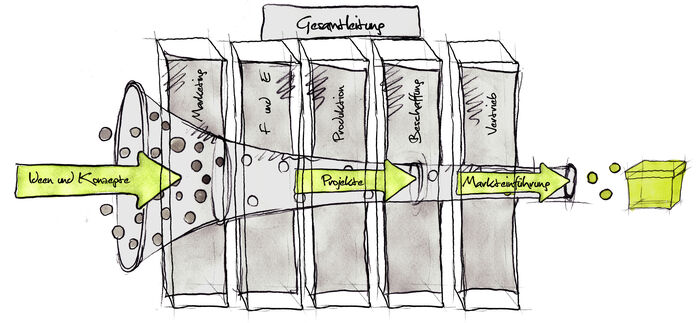 Gesamtleitung
Marketing
F und E
Produktion
Beschaffung
Vertrieb
Ideen und Konzepte
Projekte
Markteinführung